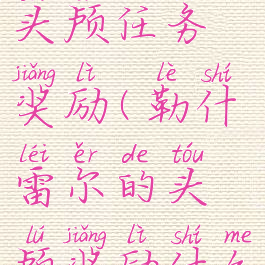 头颅任务
jiǎng lì lè shí
奖励(勒什
léi ěr de tóu
雷尔的头
lú jiǎng lì shí me
颅奖励什么